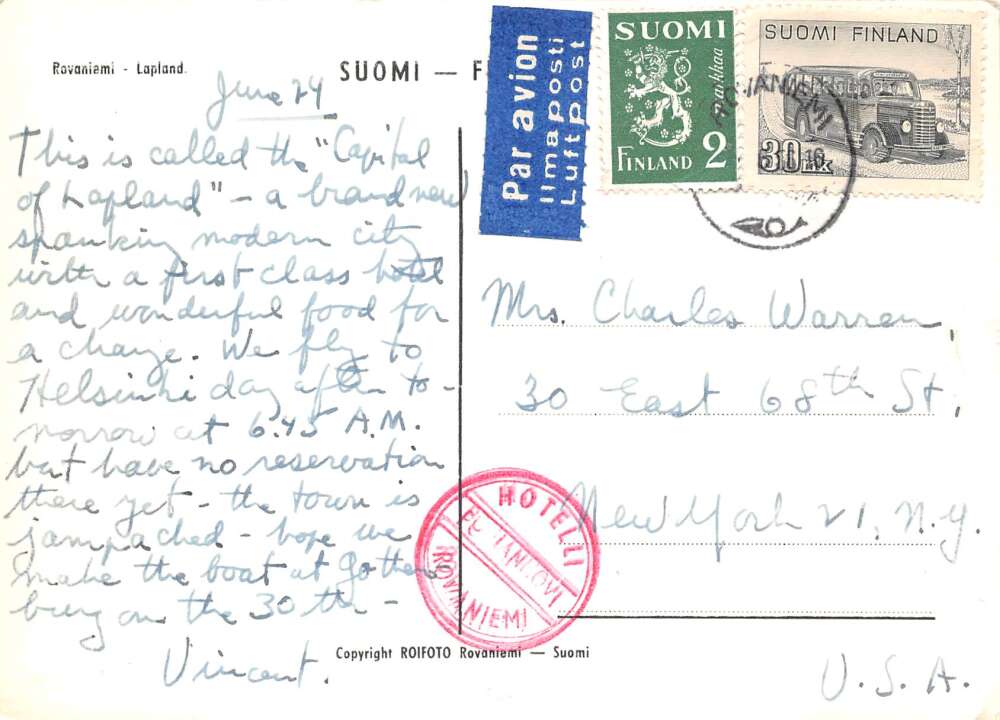 Rovaniemi - Lapland.
SUOMI — F
Par avion
Ilmaposti
Luftpost
SUOMI
markkaa
FINLAND 2
SUOMI FINLAND
30
ROVANIEMI
June 24
This is called the "Capital
of Lapland" - a brand new
spanking modern city
with a first class hotel
and wonderful food for
a change. We fly to
Helsinki day after to-
morrow at 6.45 A.M.
but have no reservation
there yet - the town is
jampacked - hope we
make the boat at Gothen
burg on the 30th -
Vincent.
Mrs. Charles Warren,
30 East 68th St,
New York 21, N.Y.
U.S.A.
HOTELLI
ROVANIEMI
Copyright ROIFOTO Rovaniemi — Suomi